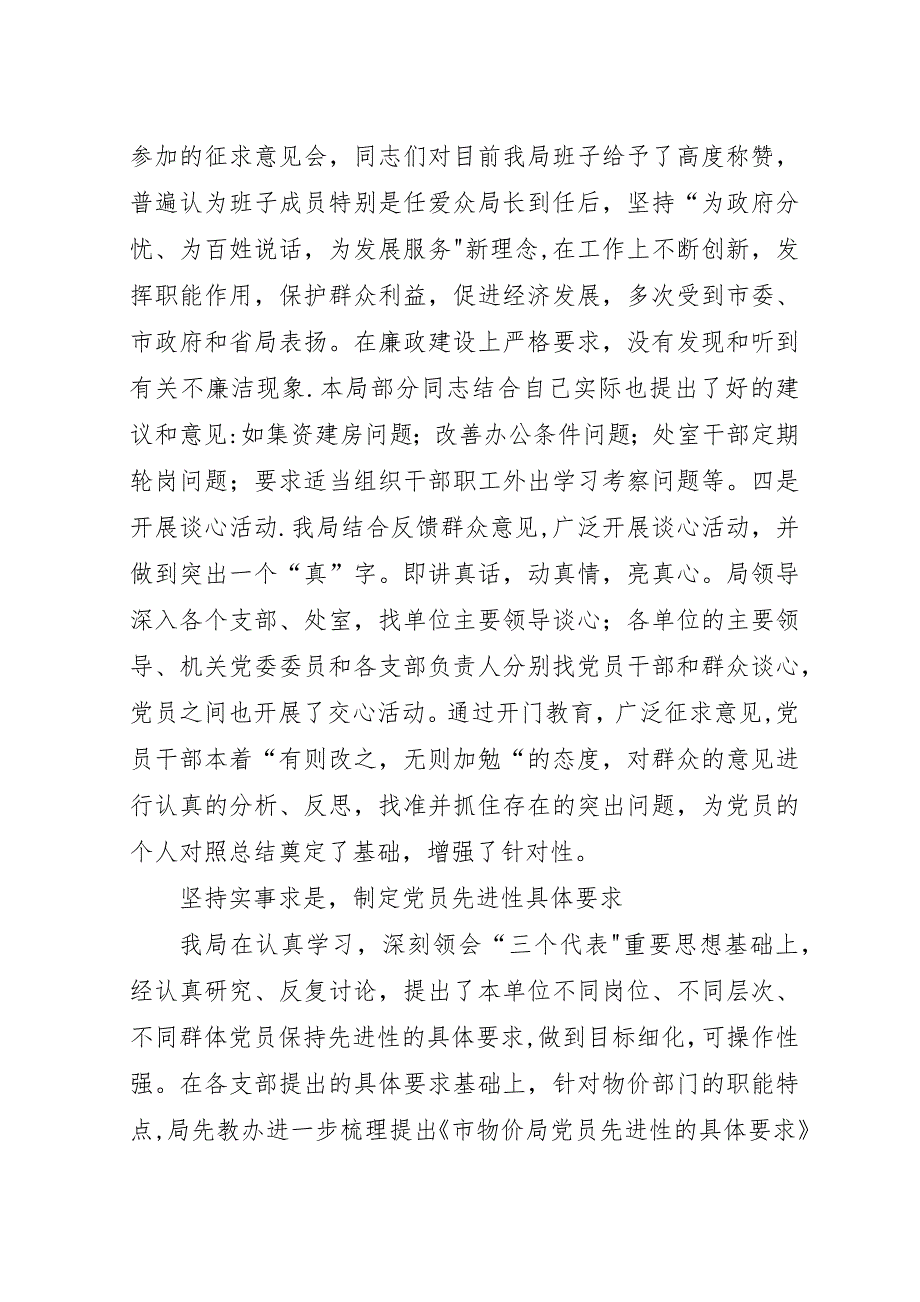 参加的征求意见会，同志们对目前我局班子给予了高度称赞，
普遍认为班子成员特别是任爱众局长到任后，坚持“为政府分
忧、为百姓说话，为发展服务"新理念,在工作上不断创新，发
挥职能作用，保护群众利益，促进经济发展，多次受到市委、
市政府和省局表扬。在廉政建设上严格要求，没有发现和听到
有关不廉洁现象.本局部分同志结合自己实际也提出了好的建
议和意见:如集资建房问题；改善办公条件问题；处室干部定期
轮岗问题；要求适当组织干部职工外出学习考察问题等。四是
开展谈心活动.我局结合反馈群众意见,广泛开展谈心活动，并
做到突出一个“真”字。即讲真话，动真情，亮真心。局领导
深入各个支部、处室，找单位主要领导谈心；各单位的主要领
导、机关党委委员和各支部负责人分别找党员干部和群众谈心，
党员之间也开展了交心活动。通过开门教育，广泛征求意见,党
员干部本着“有则改之，无则加勉“的态度，对群众的意见进
行认真的分析、反思，找准并抓住存在的突出问题，为党员的
个人对照总结奠定了基础，增强了针对性。
坚持实事求是，制定党员先进性具体要求
我局在认真学习，深刻领会“三个代表"重要思想基础上，
经认真研究、反复讨论，提出了本单位不同岗位、不同层次、
不同群体党员保持先进性的具体要求,做到目标细化,可操作性
强。在各支部提出的具体要求基础上，针对物价部门的职能特
点,局先教办进一步梳理提出《市物价局党员先进性的具体要求》